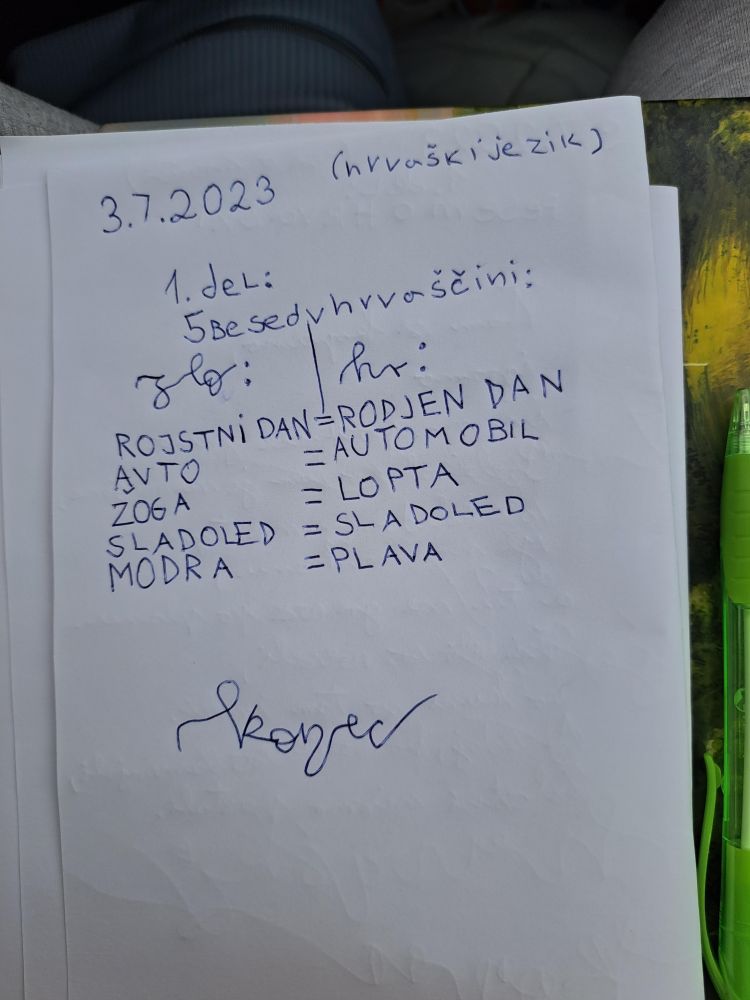 3.7.2023 (hrvaški jezik)
1. del:
5 Besed v hrvaščini:
zlo: hr:
ROJSTNI DAN = RODJEN DAN
AVTO = AUTOMOBIL
ŽOGA = LOPTA
SLADOLED = SLADOLED
MODRA = PLAVA
konec